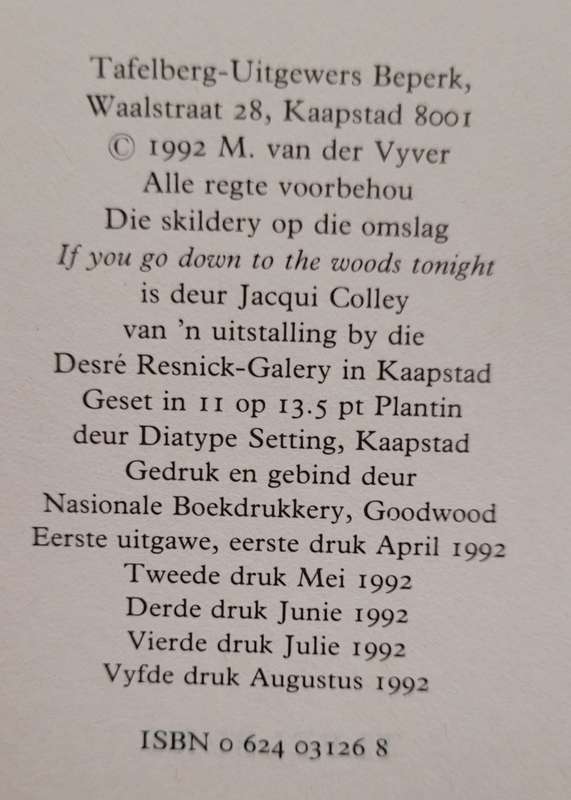 Tafelberg-Uitgewers Beperk,
Waalstraat 28, Kaapstad 8001
© 1992 M. van der Vyver
Alle regte voorbehou
Die skildery op die omslag
If you go down to the woods tonight
is deur Jacqui Colley
van 'n uitstalling by die
Desré Resnick-Galery in Kaapstad
Geset in 11 op 13.5 pt Plantin
deur Diatype Setting, Kaapstad
Gedruk en gebind deur
Nasionale Boekdrukkery, Goodwood
Eerste uitgawe, eerste druk April 1992
Tweede druk Mei 1992
Derde druk Junie 1992
Vierde druk Julie 1992
Vyfde druk Augustus 1992
ISBN 0 624 03126 8